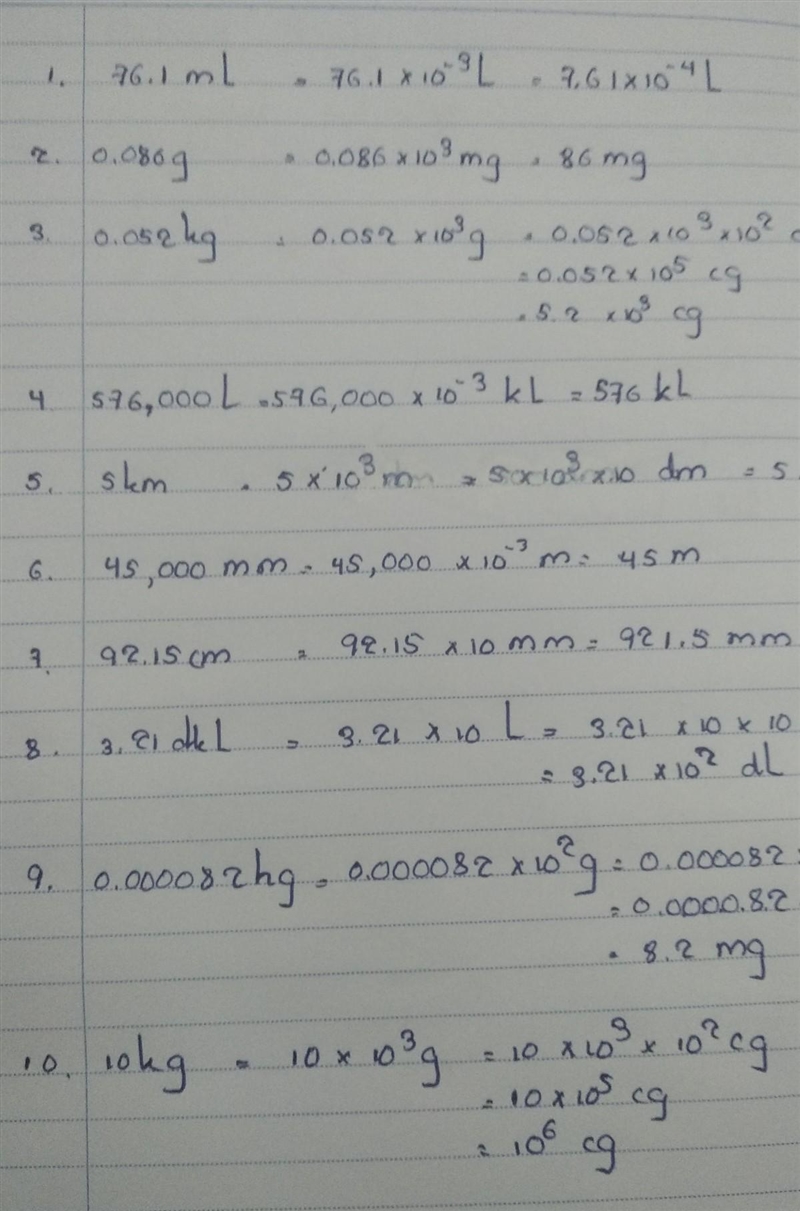 1. 76.1 mL = 76.1 × 10⁻³ L = 7.61 × 10⁻⁴ L
2. 0.086g = 0.086 × 10³ mg = 86 mg
3. 0.052 kg = 0.052 × 10³ g = 0.052 × 10³ × 10²
= 0.052 × 10⁵ cg
= 5.2 × 10³ cg
4 576,000 L = 576,000 × 10⁻³ kL = 576 kL
5. 5 km = 5 × 10³ m = 5 × 10³ × 10 dm = 5
6. 45,000 mm = 45,000 × 10⁻³ m = 45 m
7. 92.15 cm = 92.15 × 10 mm = 921.5 mm
8. 3.21 dkL = 3.21 × 10 L = 3.21 × 10 × 10
= 3.21 × 10² dL
9. 0.000082 hg = 0.000082 × 10² g = 0.000082
= 0.0000.82
= 8.2 mg
10. 10 kg = 10 × 10³ g = 10 × 10³ × 10² cg
= 10 × 10⁵ cg
= 10⁶ cg